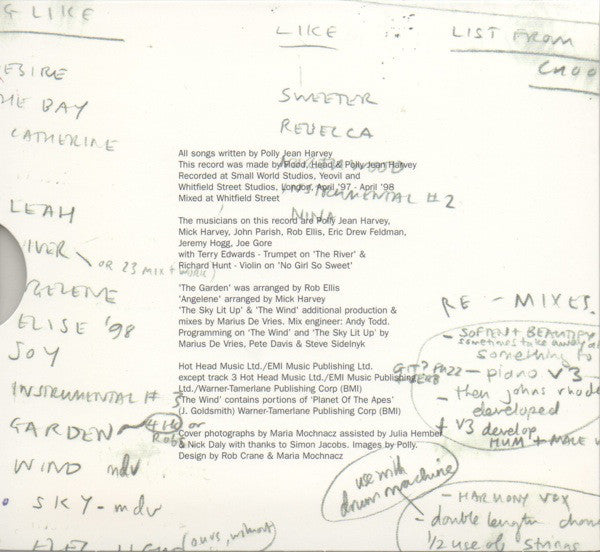 G LIKE
ESIRE
HE BAY
CATHERINE
LEAH
IVER - OR 23 MIX +
GELENE
ELISE '98
JOY
INSTRUMENTAL # 3
GARDEN 4 or
Robs
WIND mdv
SKY - mdv
(ours, without
LIKE
SWEETER
REBECCA
INSTRUMENTAL # 2
NINA
LIST FROM
All songs written by Polly Jean Harvey
This record was made by Flood, Head & Polly Jean Harvey
Recorded at Small World Studios, Yeovil and
Whitfield Street Studios, London, April '97 - April '98
Mixed at Whitfield Street
The musicians on this record are Polly Jean Harvey,
Mick Harvey, John Parish, Rob Ellis, Eric Drew Feldman,
Jeremy Hogg, Joe Gore
with Terry Edwards - Trumpet on 'The River' &
Richard Hunt - Violin on 'No Girl So Sweet'
'The Garden' was arranged by Rob Ellis
'Angelene' arranged by Mick Harvey
'The Sky Lit Up' & 'The Wind' additional production &
mixes by Marius De Vries. Mix engineer: Andy Todd.
Programming on 'The Wind' and 'The Sky Lit Up' by
Marius De Vries, Pete Davis & Steve Sidelnyk
Hot Head Music Ltd./EMI Music Publishing Ltd.
except track 3 Hot Head Music Ltd./EMI Music Publishing
Ltd./Warner-Tamerlane Publishing Corp (BMI)
'The Wind' contains portions of 'Planet Of The Apes'
(J. Goldsmith) Warner-Tamerlane Publishing Corp (BMI)
Cover photographs by Maria Mochnacz assisted by Julia Hember
& Nick Daly with thanks to Simon Jacobs. Images by Polly.
Design by Rob Crane & Maria Mochnacz
RE - MIXES.
- SOFTEN + BEAUTIFY
sometimes take away a
something to
- piano V3
- then johns rhode
developed
+ V3 develop
HUM + MALE
use with
drum machine
- HARMONY VOX
- double length
1/2 use of strings